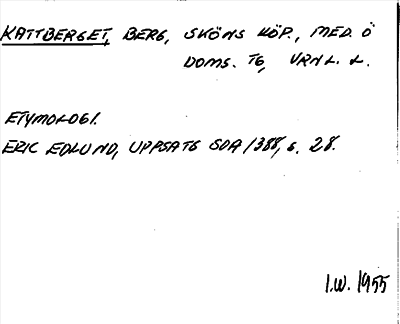 KATTBERGET, BERG, SKÖNS KÖP., MED. Ö
DOMS. TG, VRNL. L.
ETYMOLOGI.
ERIC EDLUND, UPPSATS SOA/388, s. 28.
I.W. 1955